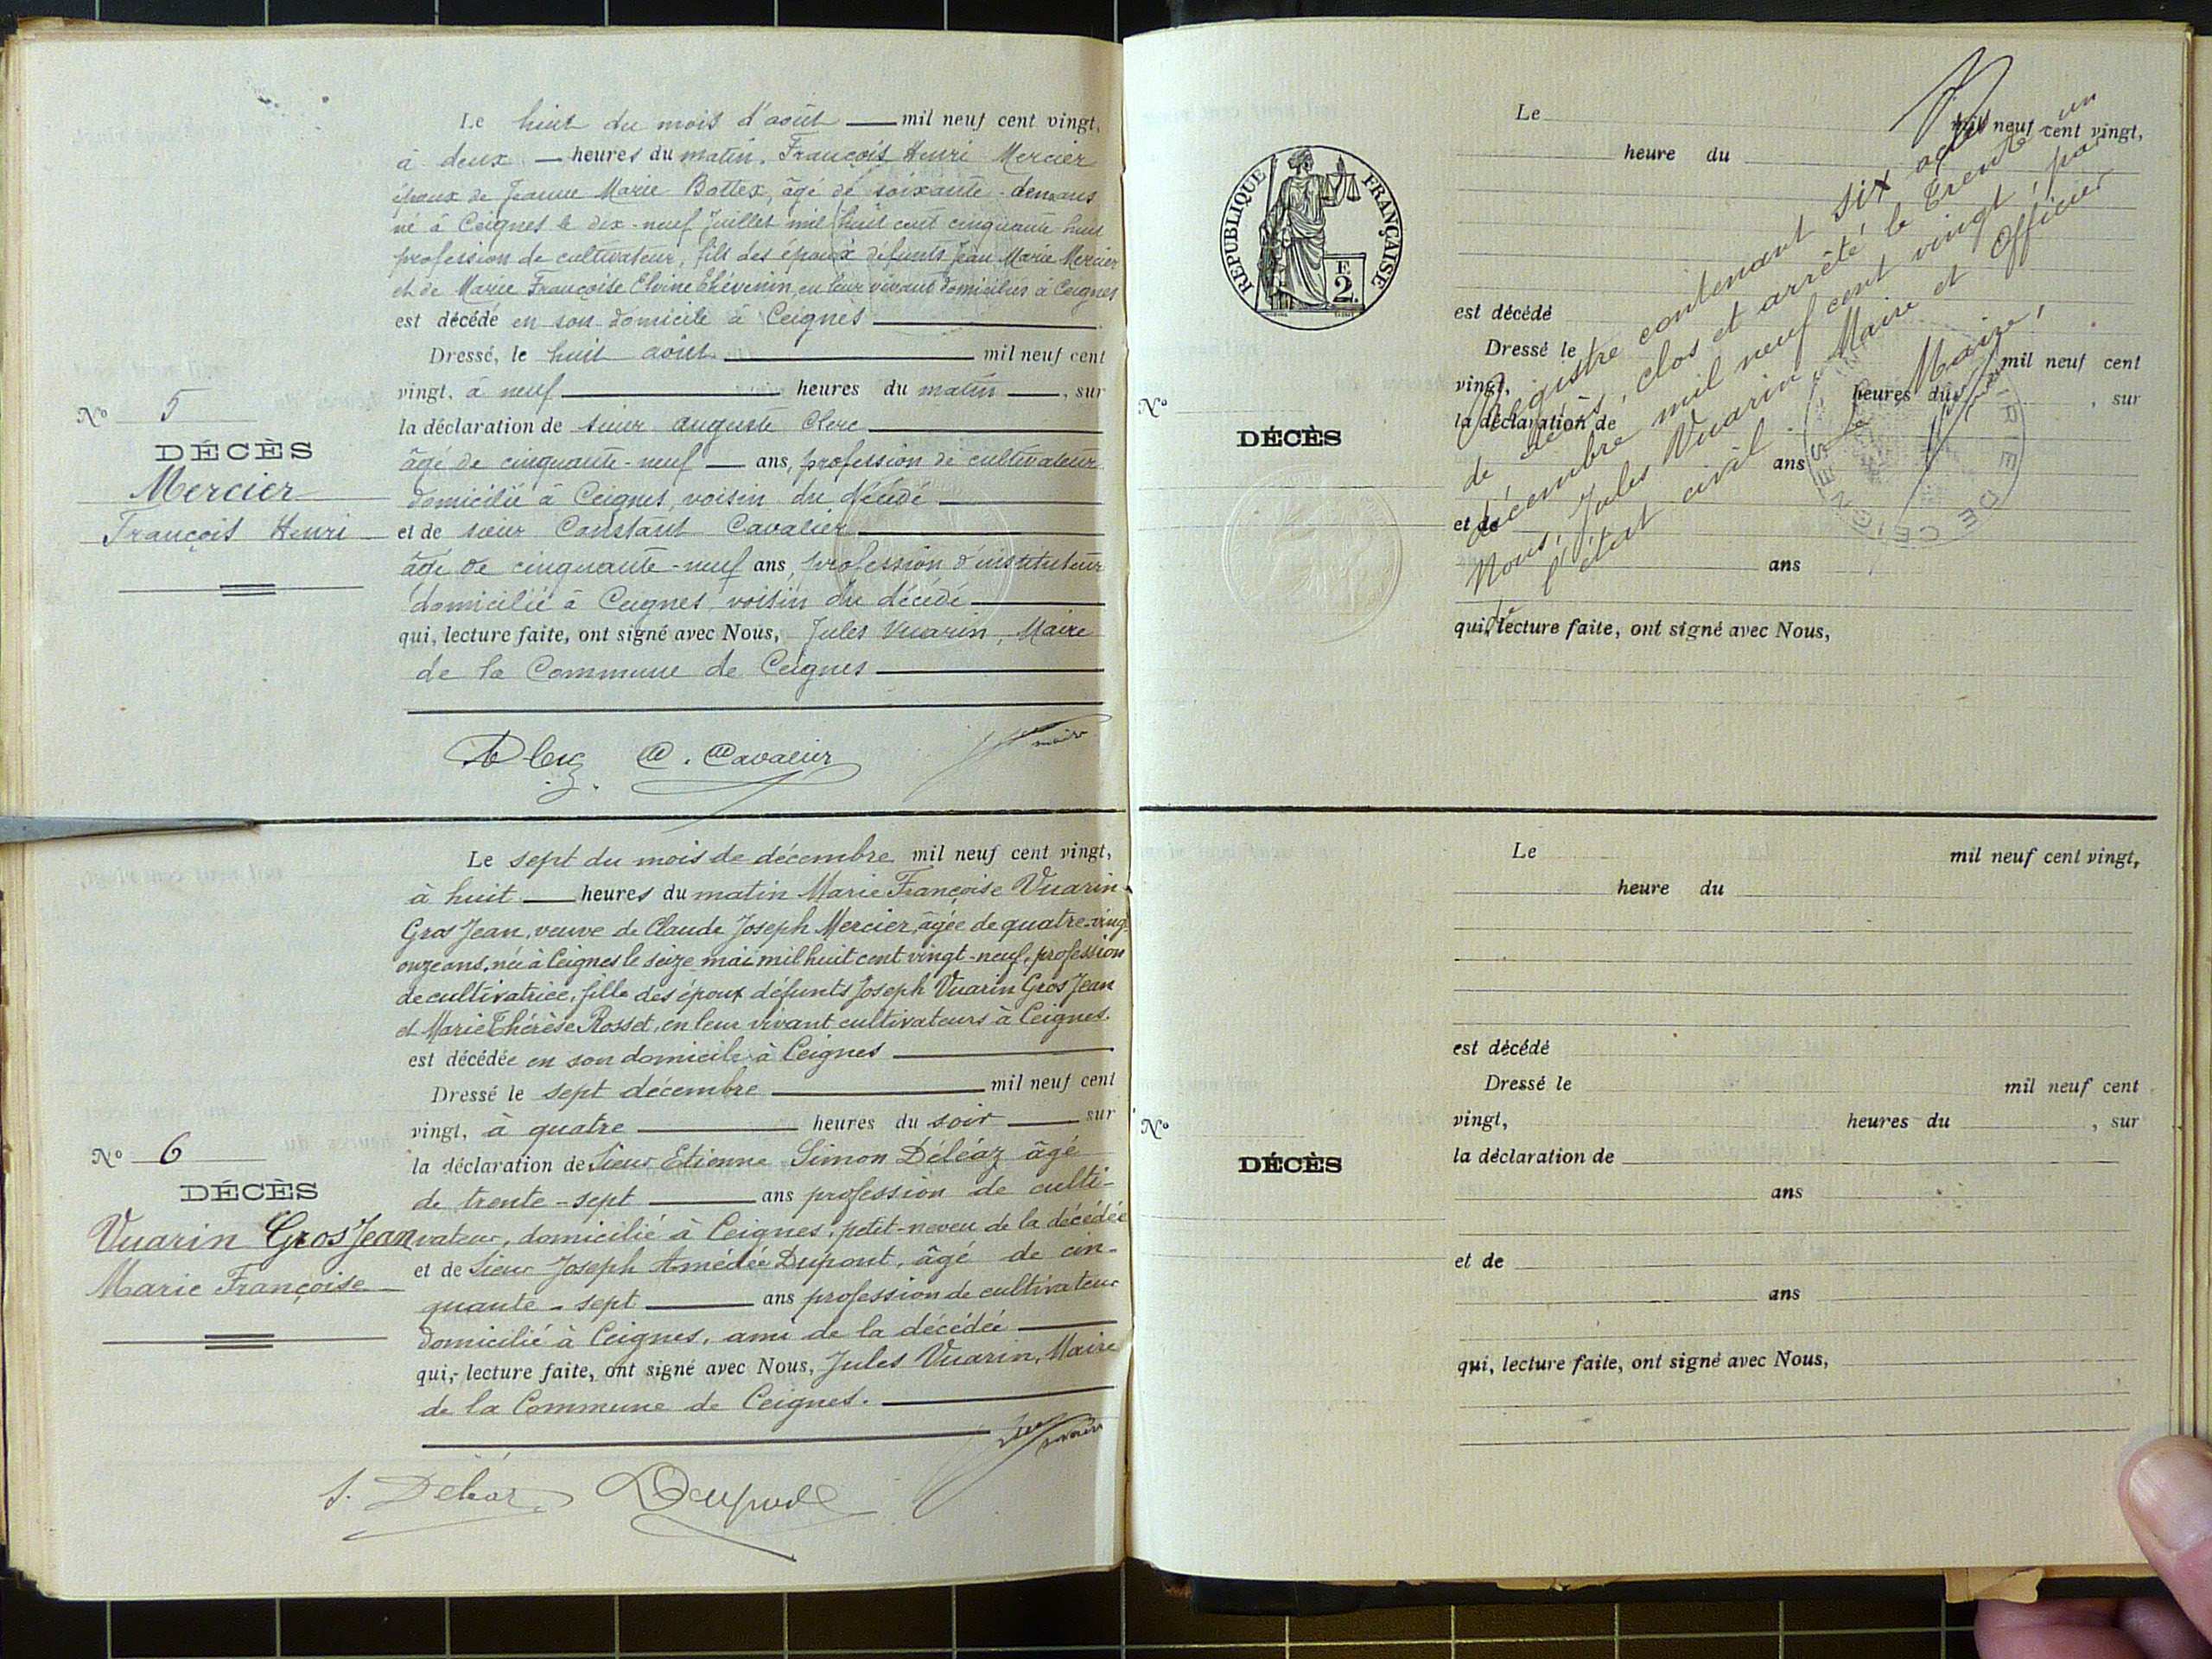 Le huit du mois d'août mil neuf cent vingt,
à deux heures du matin, François Henri Mercier
époux de Jeanne Marie Bottex, âgé de soixante-deux ans
né à Ceignes le dix-neuf Juillet mil huit cent cinquante huit
profession de cultivateur, fils des époux défunts Jean Marie Mercier
et de Marie Françoise Thévenin, en leur vivant domiciliés à Ceignes
est décédé en son domicile à Ceignes
Dressé, le huit août mil neuf cent
vingt, à neuf heures du matin, sur
la déclaration de sieur Auguste Clerc
âgé de cinquante-neuf ans, profession de cultivateur
domicilié à Ceignes, voisin du décédé
et de sieur Constant Cavalier
âgé de cinquante-neuf ans, profession d'instituteur
domicilié à Ceignes, voisin du décédé
qui, lecture faite, ont signé avec Nous, Jules Vuarin, Maire
de la Commune de Ceignes
N° 5
DÉCÈS
Mercier
François Henri
A Clerc C. Cavalier
Le sept du mois de décembre mil neuf cent vingt,
à huit heures du matin Marie Françoise Vuarin-
Gros Jean, veuve de Claude Joseph Mercier, âgée de quatre-vingt
onze ans, née à Ceignes le seize mai mil huit cent vingt-neuf, profession
de cultivatrice, fille des époux défunts Joseph Vuarin Gros Jean
et Marie Thérèse Rosset, en leur vivant cultivateurs à Ceignes.
est décédée en son domicile à Ceignes
Dressé le sept décembre mil neuf cent
vingt, à quatre heures du soir sur
la déclaration de Sieur Etienne Simon Déléaz âgé
de trente-sept ans profession de culti-
vateur, domicilié à Ceignes, petit-neveu de la décédée
et de Sieur Joseph Amédée Dupont, âgé de cin-
quante-sept ans profession de cultivateur
domicilié à Ceignes, ami de la décédée
qui, lecture faite, ont signé avec Nous, Jules Vuarin, Maire
de la Commune de Ceignes.
N° 6
DÉCÈS
Vuarin Gros Jean
Marie Françoise
S. Déléaz Dupont
REPUBLIQUE FRANÇAISE
F
2
N°
DÉCÈS
Le mil neuf cent vingt,
heure du
est décédé
Dressé le mil neuf cent
vingt, heures du , sur
la déclaration de
ans
et de
ans
qui, lecture faite, ont signé avec Nous,
registre contenant six actes
de décès, clos et arrêté le trente un
décembre mil neuf cent vingt, par
Nous, Jules Vuarin, Maire et Officier
de l'état civil.
Le Maire,
MAIRIE DE CEIGNES
Le mil neuf cent vingt,
heure du
est décédé
Dressé le mil neuf cent
vingt, heures du , sur
la déclaration de
ans
et de
ans
qui, lecture faite, ont signé avec Nous,
N°
DÉCÈS